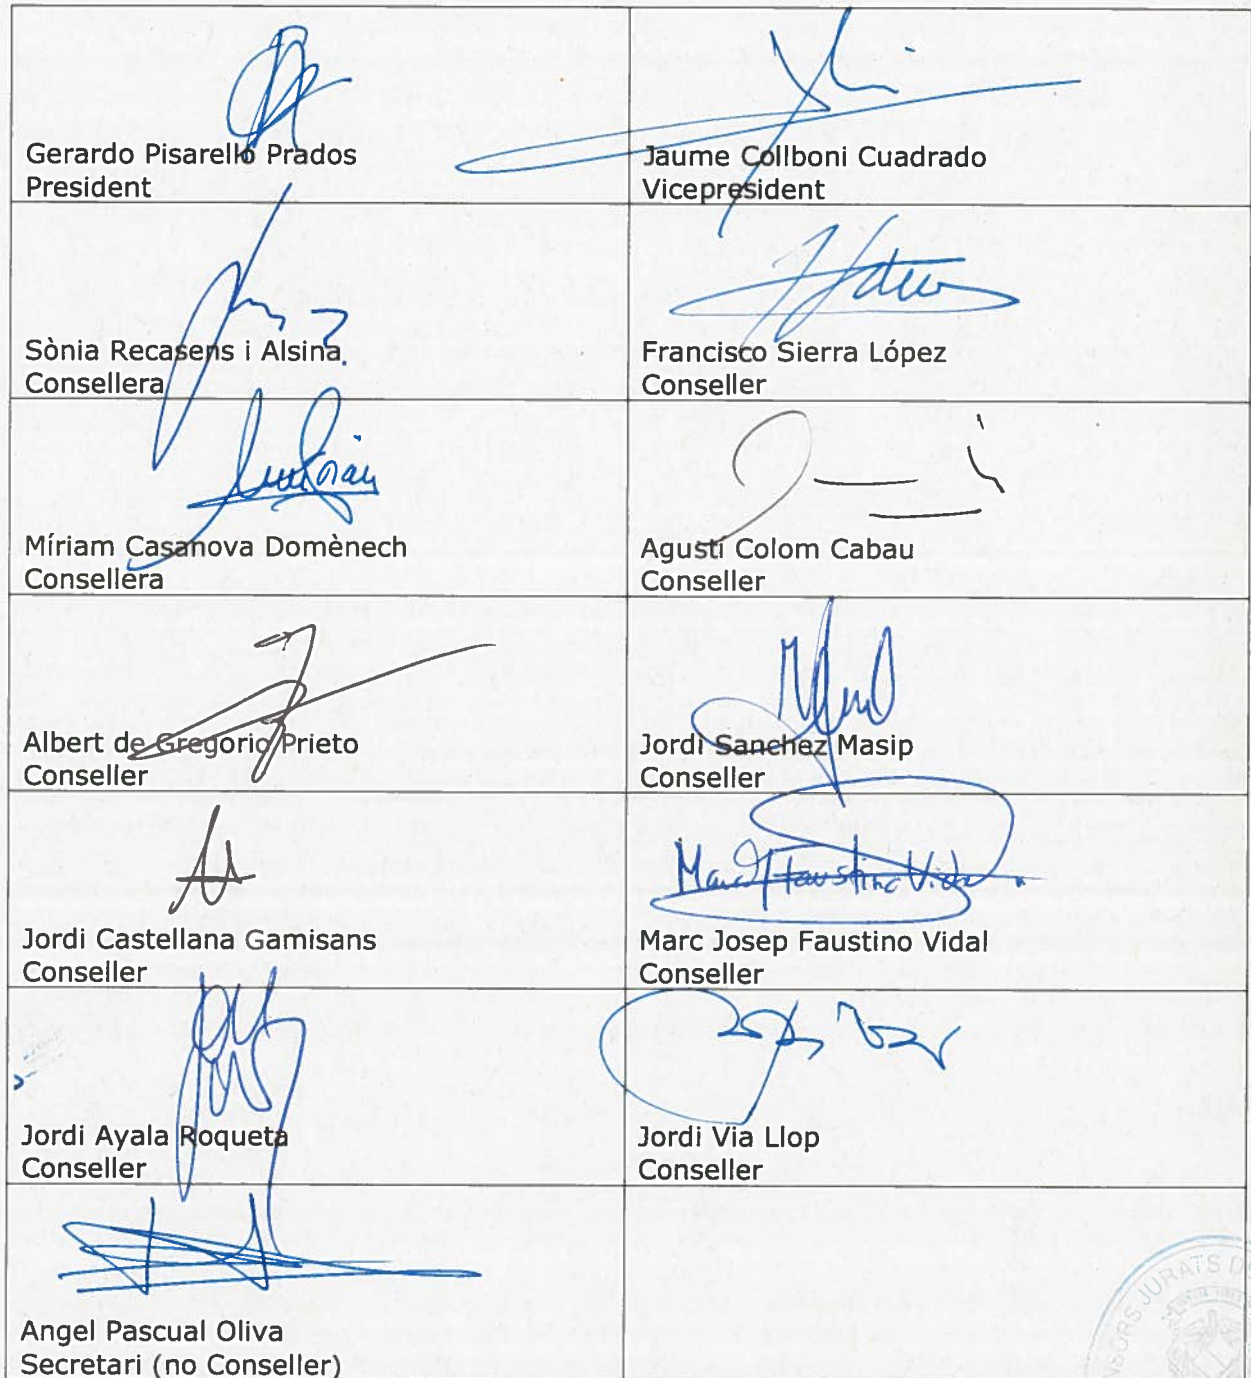 Gerardo Pisarello Prados
President
Jaume Collboni Cuadrado
Vicepresident
Sònia Recasens i Alsina
Consellera
Francisco Sierra López
Conseller
Míriam Casanova Domènech
Consellera
Agustí Colom Cabau
Conseller
Albert de Gregorio Prieto
Conseller
Jordi Sanchez Masip
Conseller
Jordi Castellana Gamisans
Conseller
Marc J Faustino Vidal
Marc Josep Faustino Vidal
Conseller
Jordi Ayala Roqueta
Conseller
Jordi Via Llop
Conseller
Angel Pascual Oliva
Secretari (no Conseller)
JURATS D